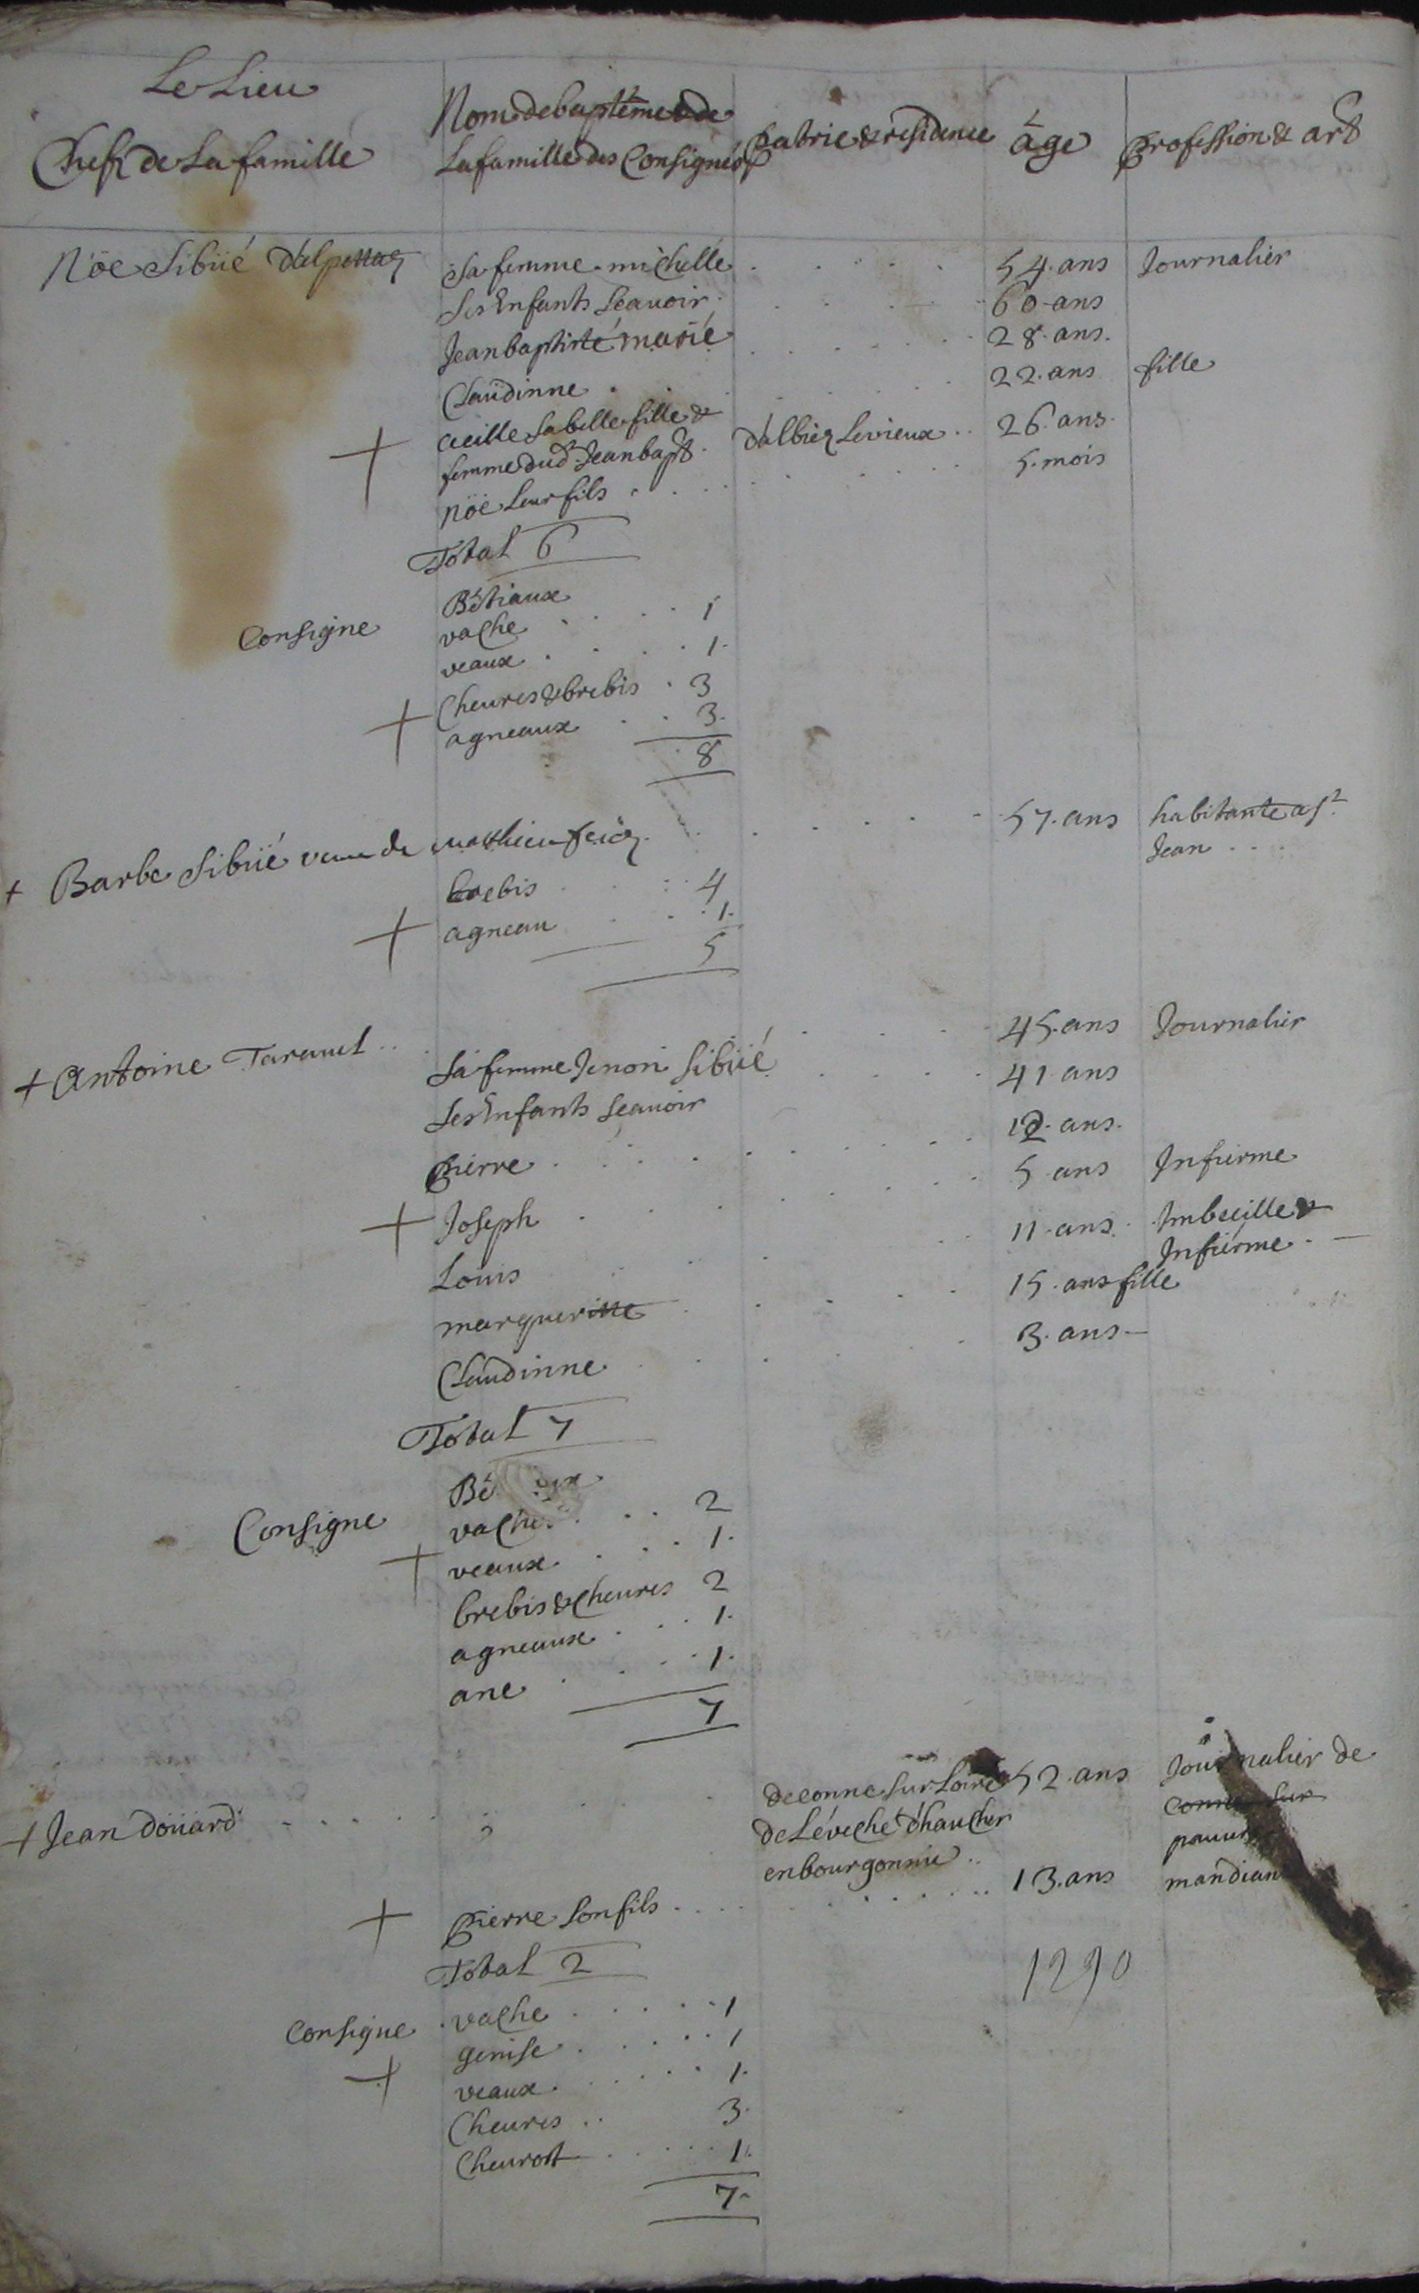 Le Lieu
Chefz de La famille
Nom de baptéme & de
La famille des Consignés
patrie & residence
âge
profession & art
Nöe Sibüé d'alpettaz 54. ans Journalier
Sa femme michelle 60. ans
Ses Enfants Scauoir
Jean baptisté marié 28. ans.
Claudinne 22. ans fille
Cicille Sa belle fille &
femme dud. Jean bapt. d'albiez Le vieux 26. ans.
Nöé Leur fils 5. mois
Total 6
Consigne
Bétiaux
vache 1
veaux 1.
Cheures & brebis 3
agneaux 3.
8
+ Barbe Sibüé veuue de mathieu 57. ans habitante a St.
Jean
brebis 4
agneau 1.
5
+ Antoine Tarauel 45. ans Journalier
Sa femme Jenon Sibüé 41. ans
Ses Enfants Scauoir
Pierre 12. ans.
+ Joseph 5 ans Infirme
Louis 11. ans. Imbecille &
Infirme.
margueritte 15. ans fille
Claudinne 3. ans
Total 7
Consigne
vaches 2
+ veaux 1.
brebis & Cheures 2
agneaux 1.
ane 1.
7
+ Jean doüard de conne Sur Loire 52. ans Journalier de
de L'éveché d'haucher conne Sur
en bourgonnie pauure
+ Pierre Son fils 13. ans mandiant
Total 2
1290
Consigne vache 1
+ genise 1
veaux 1.
Cheures 3.
Cheurot 1.
7.